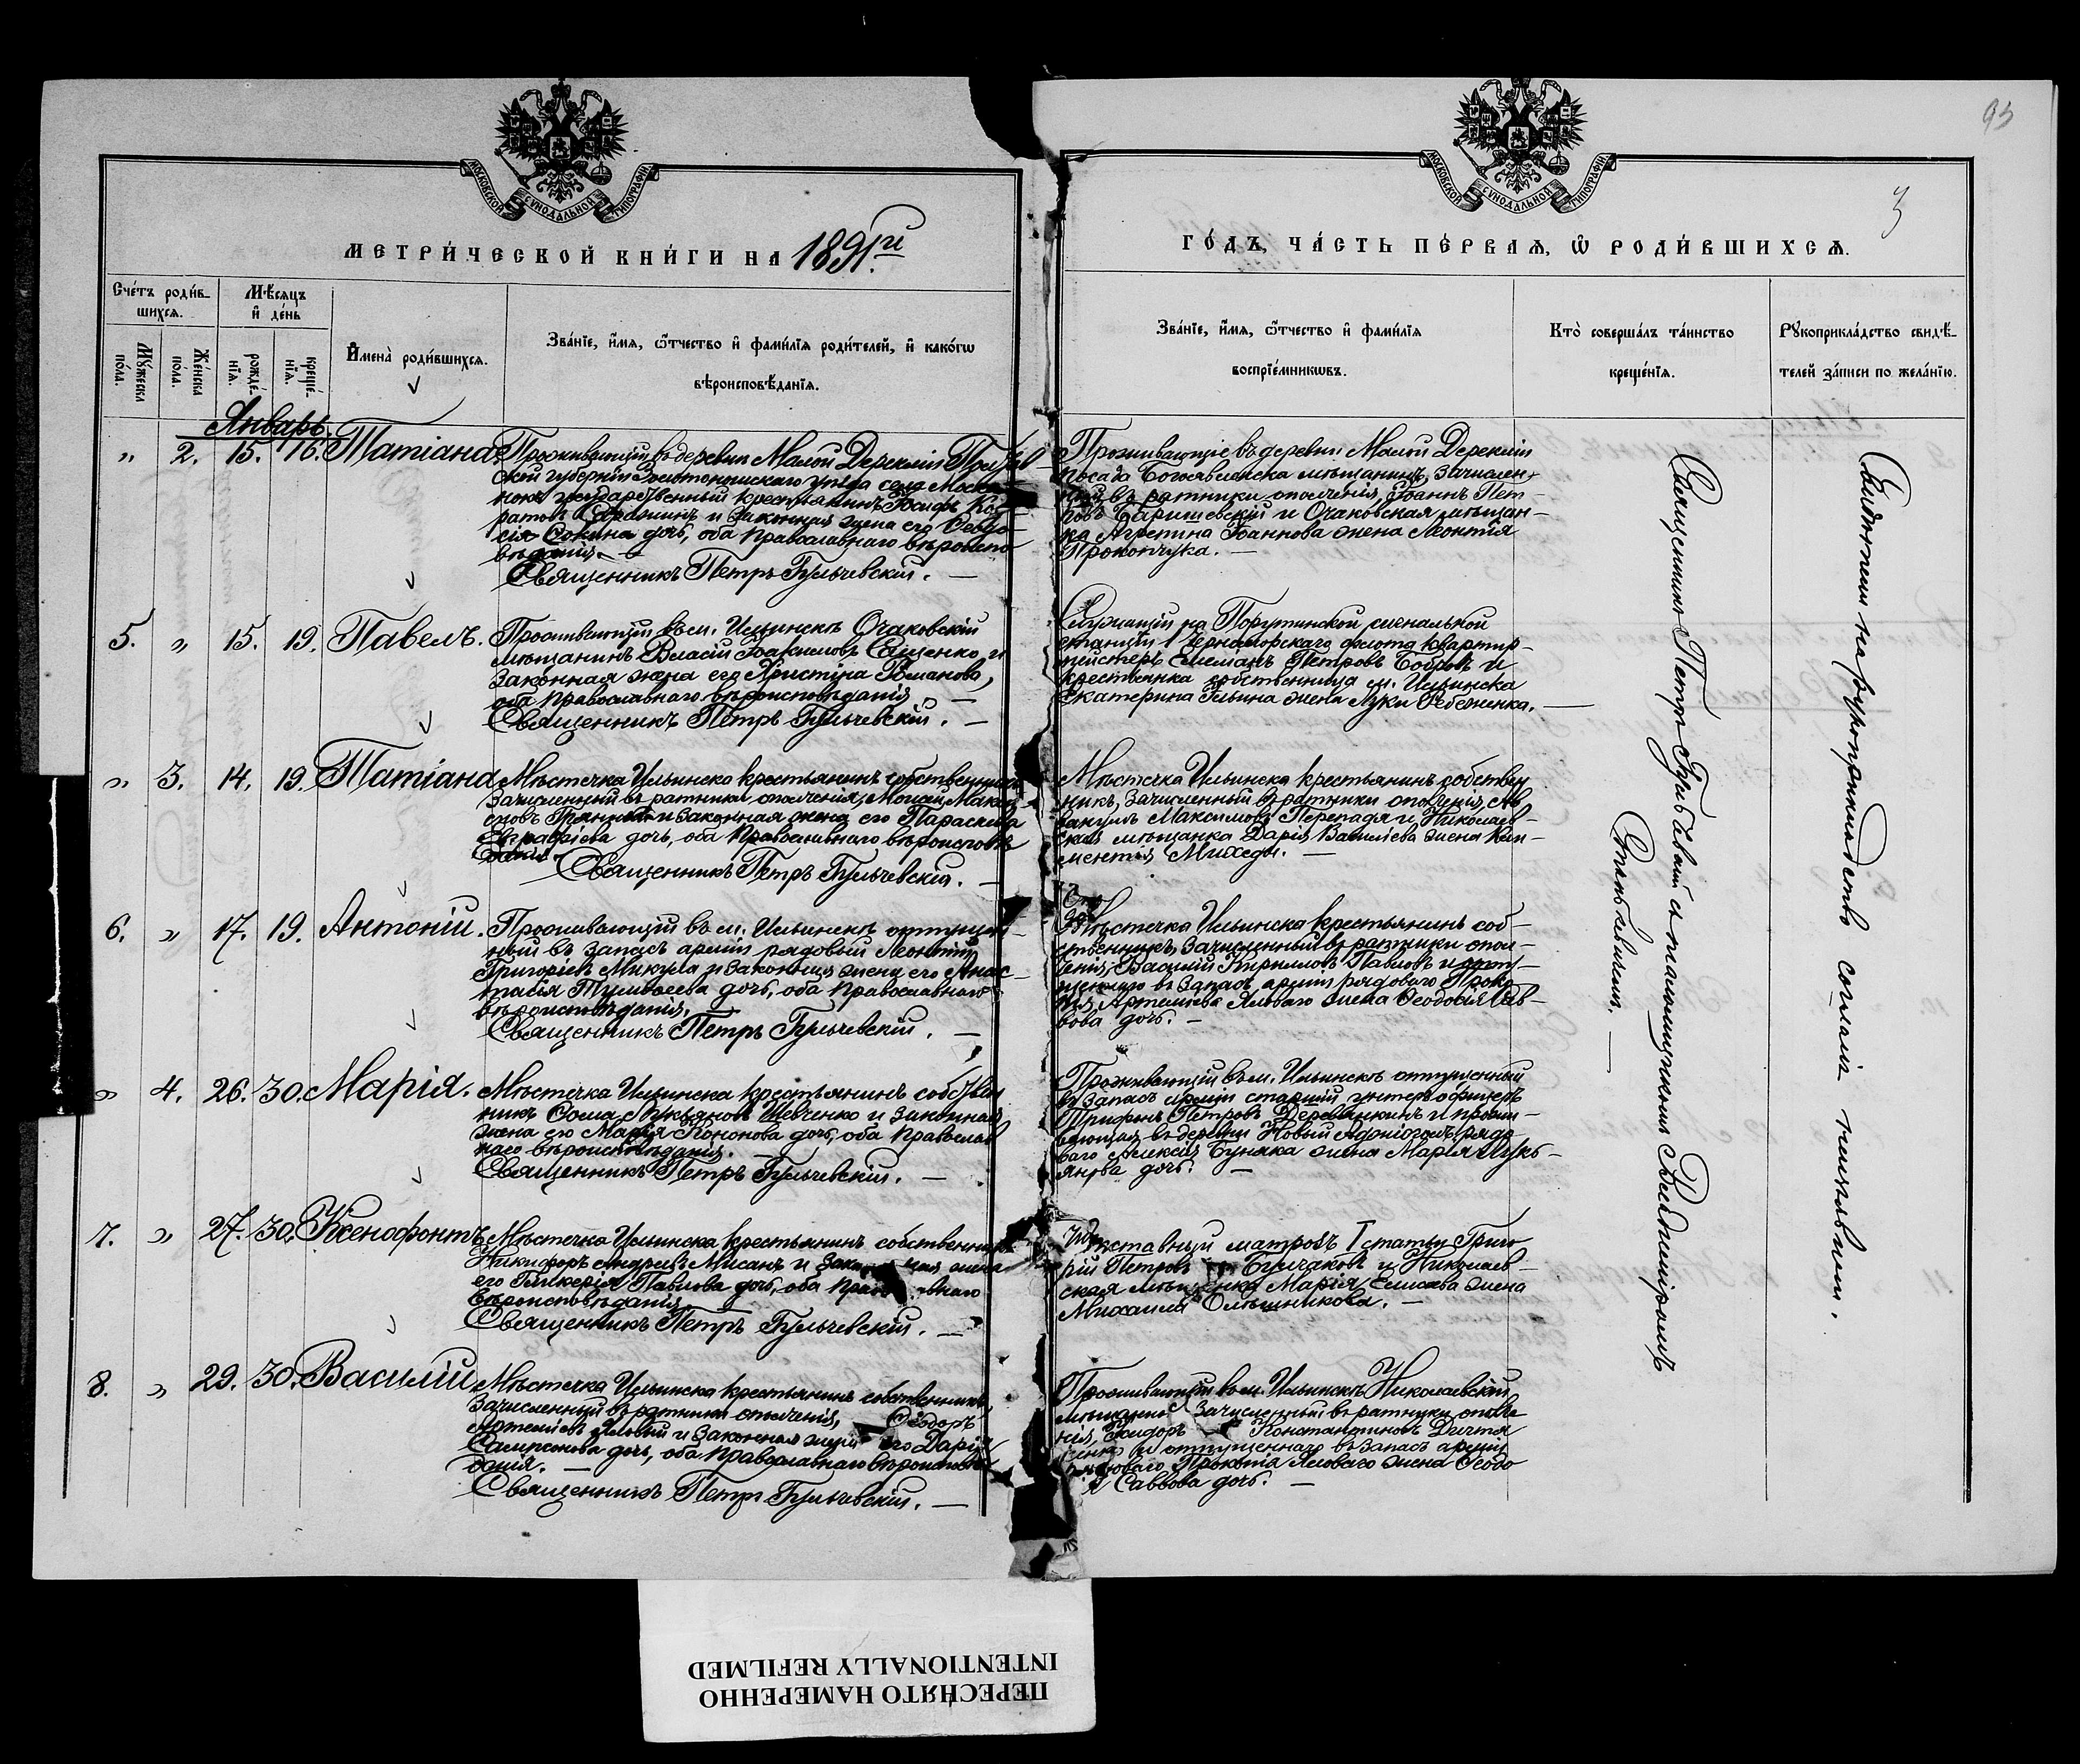 95
3
МОСКОВСКОЙ СѴНОДАЛЬНОЙ ТИПОГРАФІИ
МОСКОВСКОЙ СѴНОДАЛЬНОЙ ТИПОГРАФІИ
МЕТРИ́ЧЕСКОЙ КНИ́ГИ НА 1891й
ГО́ДЪ, ЧА́СТЬ ПЕ́РВАЯ, Ѡ҆ РОДИ́ВШИХСЯ.
Сче́тъ роди́в-
шихся.
Му́жеска
по́ла.
Же́нска
по́ла.
Мѣ́сяцъ
и҆ де́нь
рожде́-
нїя.
креще́-
нїя.
И҆мена̀ роди́вшихся.
Зва́нїе, и҆́мя, ѻ҆́тчество и҆ фами́лїя роди́телей, и҆ како́гѡ
вѣроисповѣ́данїя.
Зва́нїе, и҆́мя, ѻ҆́тчество и҆ фами́лїя
воспрїе́мникѡвъ.
Кто̀ соверша́лъ та́инство
креще́нїя.
Рꙋкоприкла́дство свидѣ́-
телей за́писи по жела́нїю.
Январь
" 2. 15. 16. Татіана
Проживающій въ деревни Малой Дереклии
ской губерніи Золотоношскаго уѣзда села
государственный крестьянинъ Іосифъ
и законная жена его
дочь, оба Православнаго вѣроиспо-
вѣданія.
Священникъ Петръ Бульчевскій. —
Проживающіе въ деревни Малой Дереклии
посада Богоявленска мѣщанинъ, зачислен-
ный въ ратники ополченія, Іоаннъ Пет-
ровъ Баришевскій и Очаковская мѣщан-
ка Агрепина Іоаннова жена Леонтія
Прокопчука. —
5. " 15. 19. Павелъ.
Проживающій въ м. Ильинскѣ Очаковскій
мѣщанинъ Власій Іоакимовъ Ещенко и
законная жена его Христіна Романова,
оба Православнаго вѣроисповѣданія
Священникъ Петръ Бульчевскій. —
Служащій на Порутинской сигнальной
станціи Черноморскаго флота квартир-
мейстеръ Петровъ Бобровъ и
крестьянка собственница м. Ильинска
Екатерина Ильина жена Луки Ребеженка. —
" 3. 14. 19. Татіана
Мѣстечка Ильинска крестьянинъ собственникъ
зачисленный въ ратники ополченія, Моисей
и законная жена его Параскева
Евграфіева дочь, оба Православнаго вѣроисповѣ
данія.
Священникъ Петръ Бульчевскій. —
Мѣстечка Ильинска крестьянинъ собствен
никъ, зачисленный въ ратники ополченія, Ав
вакумъ Максимовъ Перепадя и Николаев-
ская мѣщанка Дарія Василіева жена Кли-
ментія Михеды. —
6. " 17. 19. Антоній.
Проживающій въ м. Ильинскѣ отпущен-
ный въ запасъ арміи рядовый Леонтій
Григоріевъ Микула и законная жена его Анас-
тасія дочь, оба Православнаго
вѣроисповѣданія.
Священникъ Петръ Бульчевскій. —
Мѣстечка Ильинска крестьянинъ соб-
ственникъ, зачисленный въ ратники опол-
ченія, Василій Кирилловъ Павловъ и отпу-
щеннаго въ запасъ арміи рядоваго Проко
пія Артеміева Яловаго жена Ѳеодосія Сав-
вова дочь. —
" 4. 26. 30. Марія.
Мѣстечка Ильинска крестьянинъ собствен
никъ Ѳома Лукьяновъ Шевченко и законная
жена его Марія Кононова дочь, оба Православ
наго вѣроисповѣданія. —
Священникъ Петръ Бульчевскій. —
Проживающій въ м. Ильинскѣ отпущенный
въ запасъ арміи старшій унтеръ офицеръ
Трифонъ Петровъ Деревянкинъ и прожи-
вающая въ деревни Новый рядо
ваго Алексѣя Буняка жена Марія Лукь-
янова дочь. —
7. " 27. 30. Ксенофонтъ
Мѣстечка Ильинска крестьянинъ собственникъ
Никифоръ Андреевъ Мисанъ и законная жена
его Гликерія Павлова дочь, оба Православнаго
вѣроисповѣданія.
Священникъ Петръ Бульчевскій. —
Отставный матросъ I статьи Григо
рій Петровъ и Николаев-
ская мѣщанка Марія жена
Михаила —
8. " 29. 30. Василій
Мѣстечка Ильинска крестьянинъ собственникъ,
зачисленный въ ратники ополченія, Ѳеодоръ
Артеміевъ Яловый и законная жена его Дарія
Сампсонова дочь, оба Православнаго вѣроисповѣ
данія. —
Священникъ Петръ Бульчевскій. —
Проживающій въ м. Ильинскѣ Николаевскій
мѣщанинъ зачисленный въ ратники ополче
нія, Исидоръ Константиновъ
и отпущеннаго въ запасъ арміи
рядоваго Прокопія Яловаго жена Ѳеодо
Саввова дочь. —
Священникъ Петръ Бульчевскій съ псаломщикомъ Владиміромъ
Свидѣтели на рукоприкладство согласія не изъявили.
ПЕРЕСНЯТО НАМЕРЕННО
INTENTIONALLY REFILMED